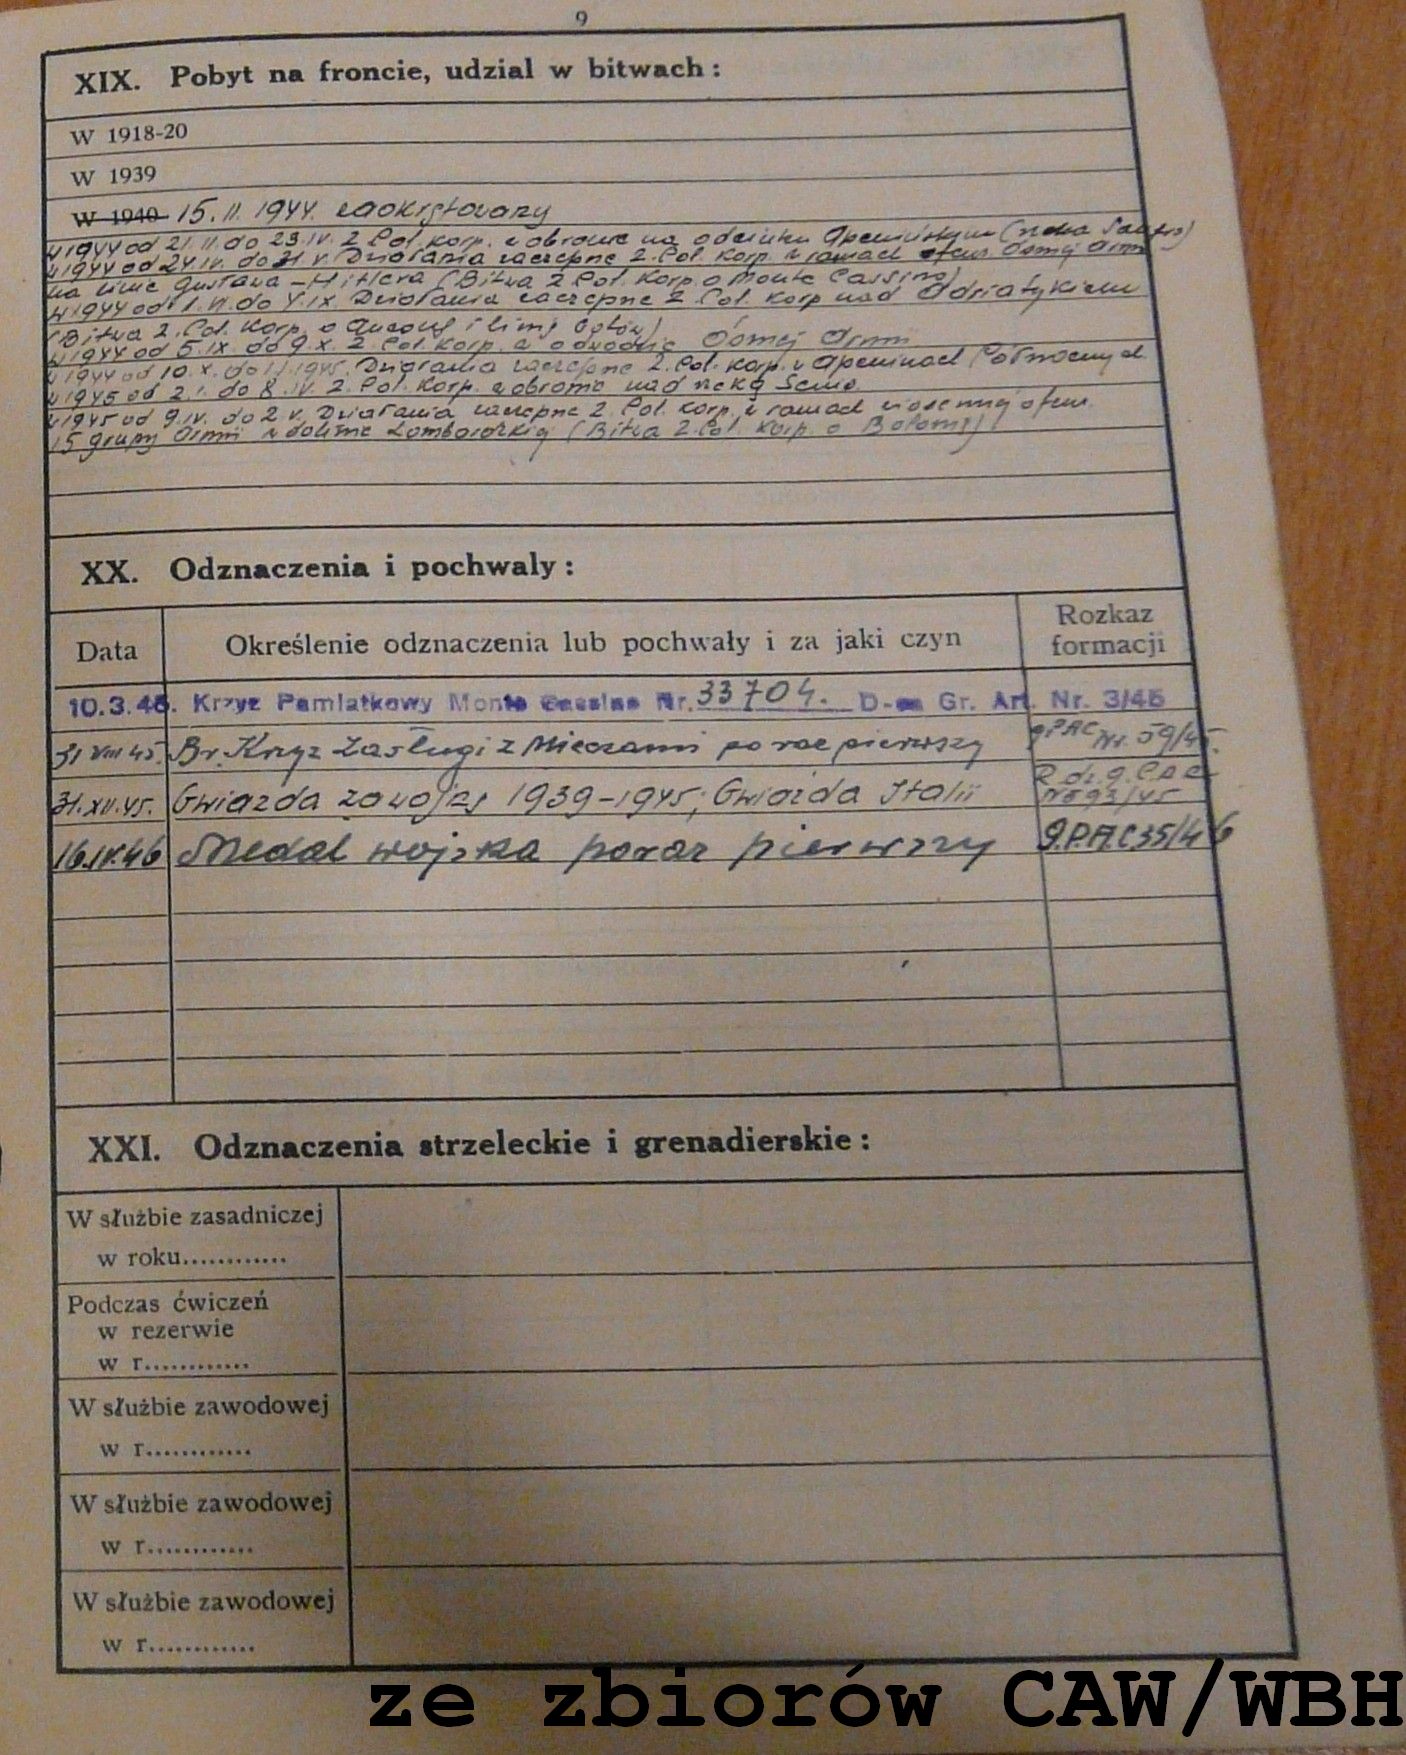 9
XIX. Pobyt na froncie, udział w bitwach :
W 1918-20
W 1939
W 1940 15.II.1944. zaokrętowany
W 1944 od 21.II. do 23.IV. 2 Pol. Korp. w obronie na odcinku Apenińskim (rzeka Sangro)
W 1944 od 24.IV. do 31.V. Działania zaczepne 2. Pol. Korp. w ramach ofens. 8smej Armii
na linie Gustawa - Hitlera (Bitwa 2 Pol. Korp. o Monte Cassino)
W 1944 od 1.VI. do 4.IX. Działania zaczepne 2. Pol. Korp. nad Adriatykiem
(Bitwa 2. Pol. Korp. o Anconę i linię Gotów)
W 1944 od 5.IX. do 9.X. 2. Pol. Korp. w odwodzie 8smej Armii
W 1944 od 10.X. do 1.I.1945. Działania zaczepne 2. Pol. Korp. w Apeninach Północnych
W 1945 od 2.I. do 8.IV. 2. Pol. Korp. w obronie nad rzeką Senio
W 1945 od 9.IV. do 2.V. Działania zaczepne 2. Pol. Korp. w ramach wiosennej ofens.
15 grupy Armii w dolinie Lombardzkiej (Bitwa 2. Pol. Korp. o Bolonię)
XX. Odznaczenia i pochwaly :
Data
Określenie odznaczenia lub pochwały i za jaki czyn
Rozkaz formacji
10.3.45. Krzyz Pamiatkowy Monte Cassino Nr. 33704. D-ca Gr. Art. Nr. 3/45
31 VIII 45. Br. Krzyż Zasługi z Mieczami po raz pierwszy 9 PAC Nr. 59/45.
31.XII.45. Gwiazda za wojnę 1939-1945; Gwiazda Italii R. dz. 9. PAC No 93/45
16.IV.46 Medal wojska poraz pierwszy 9.P.A.C 35/46
XXI. Odznaczenia strzeleckie i grenadierskie :
W służbie zasadniczej
w roku............
Podczas ćwiczeń
w rezerwie
w r............
W służbie zawodowej
w r............
W służbie zawodowej
w r............
W służbie zawodowej
w r............
ze zbiorów CAW/WBH